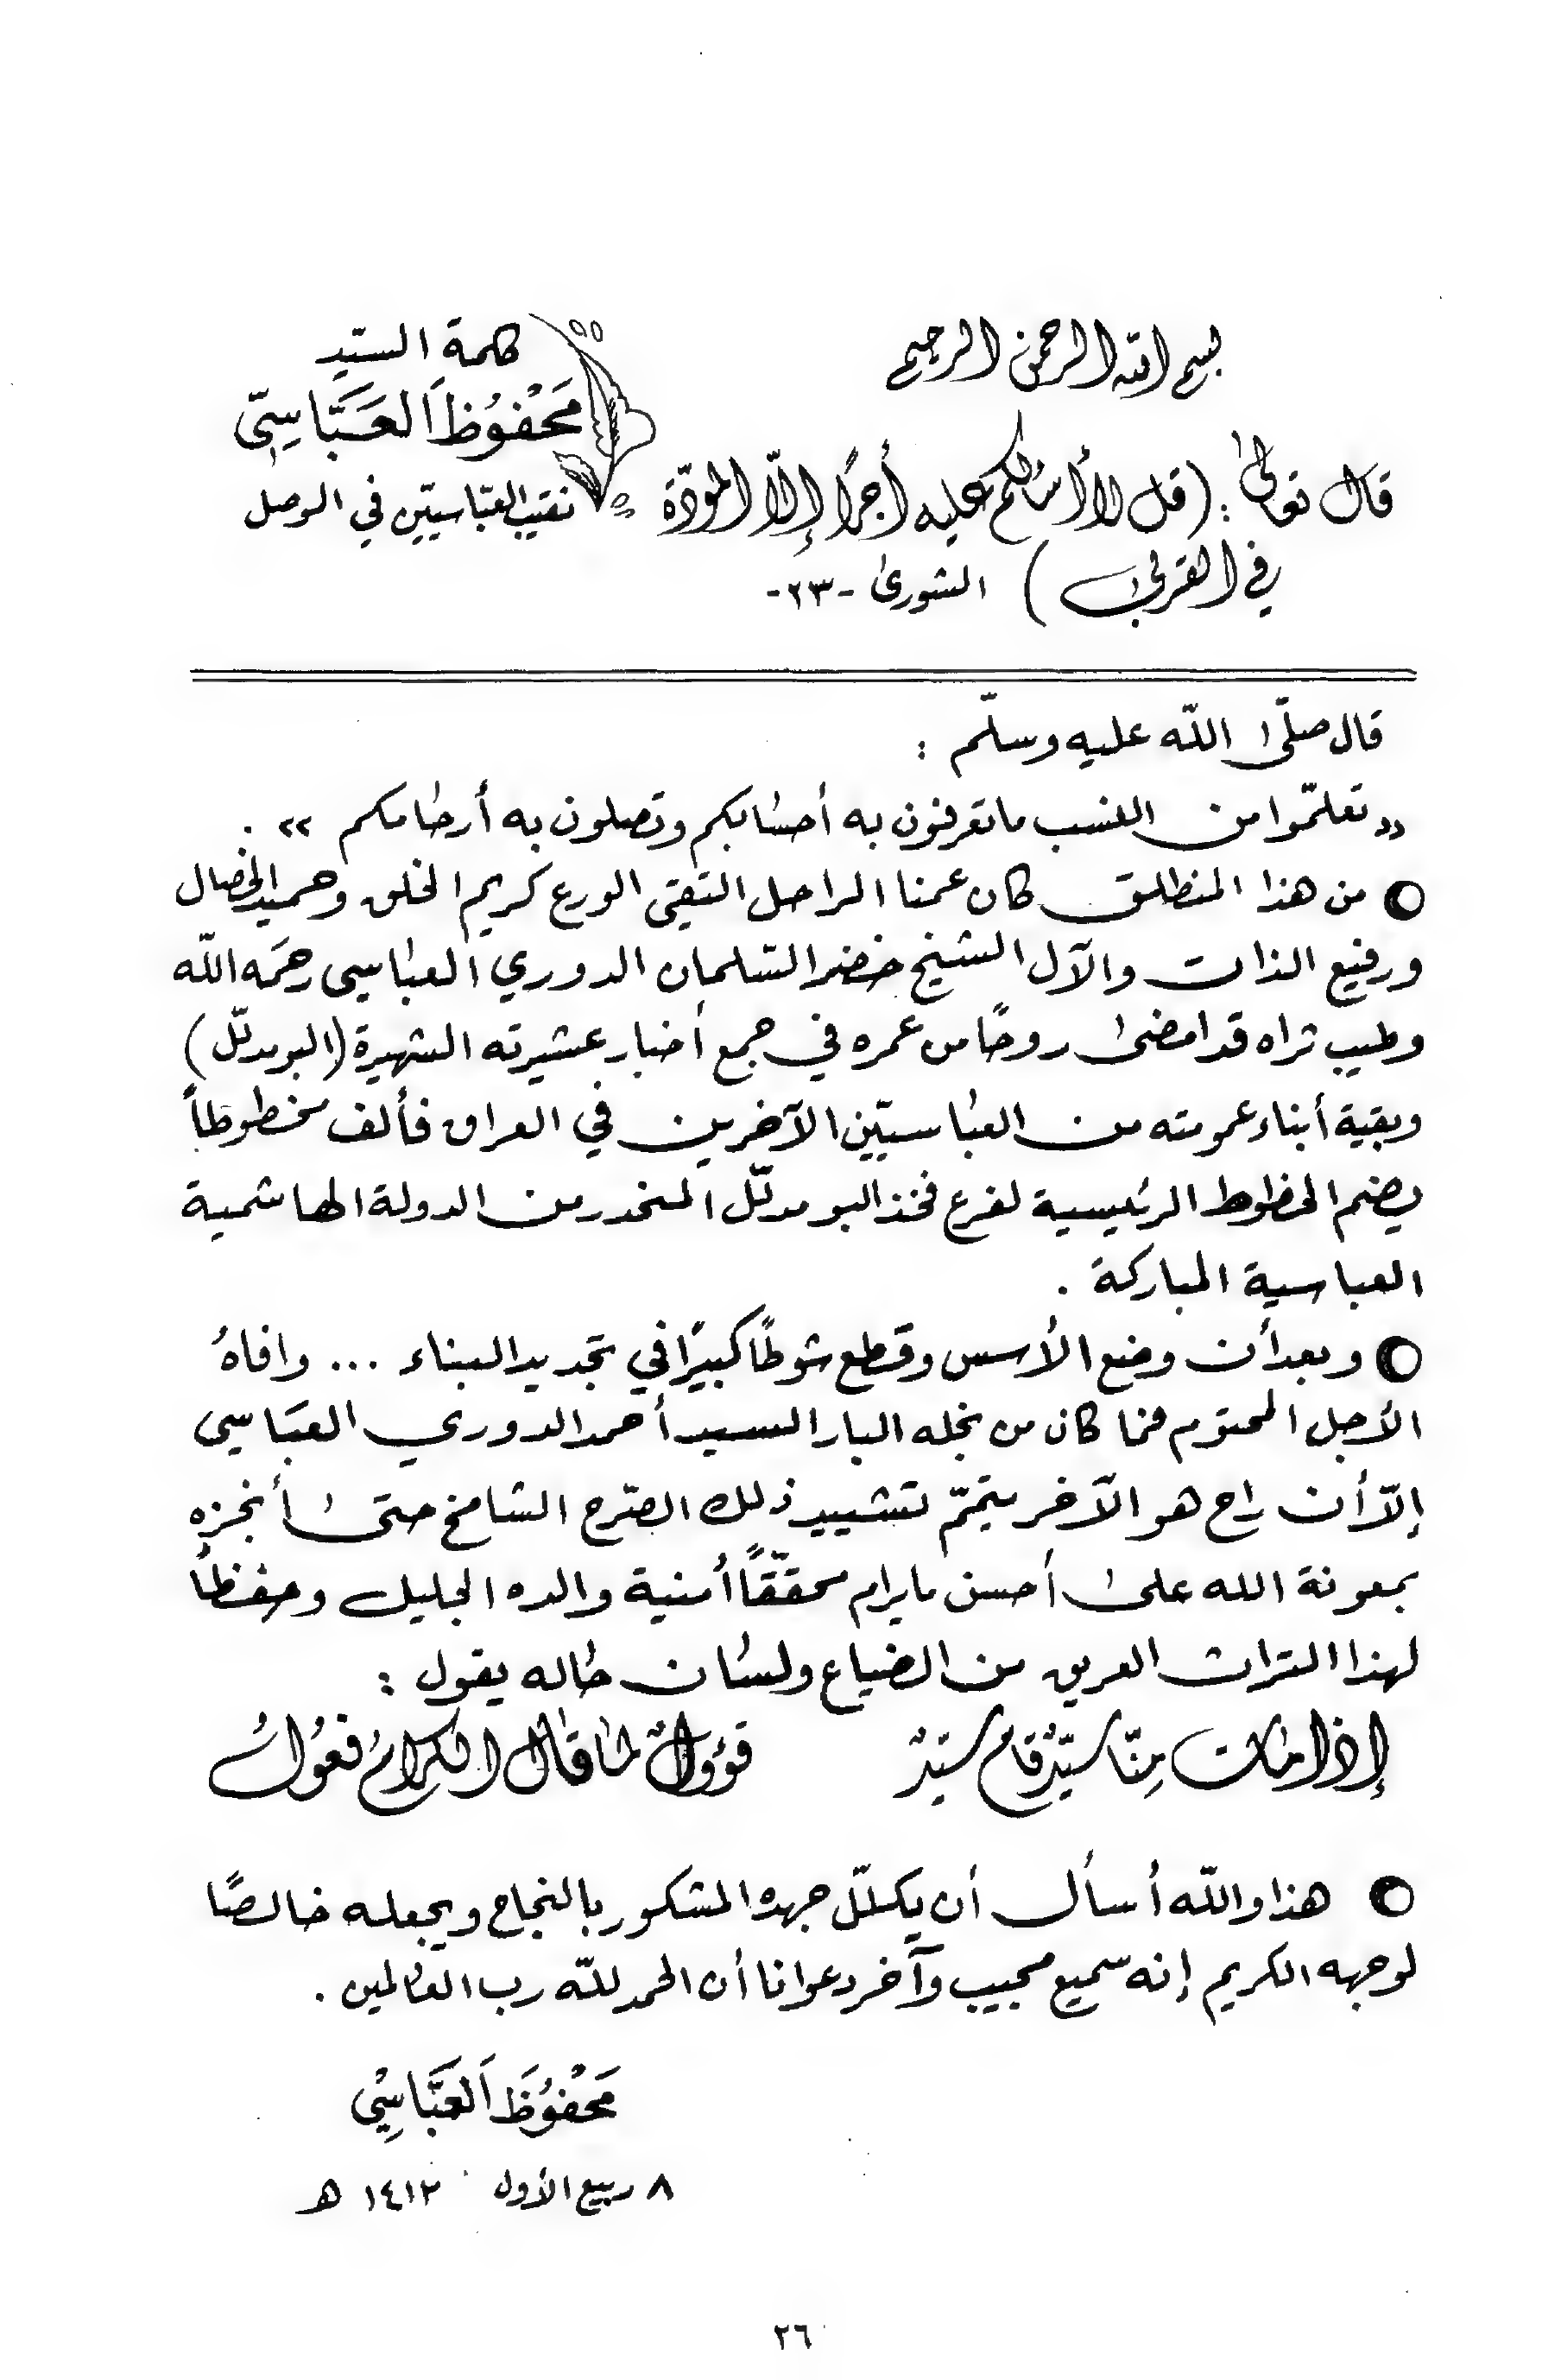 بسم الله الرحمن الرحيم
كلمة السيّد
مَحْفُوظ اَلعَبَّاسِيّ
نقيب العبّاسيّين في الموصل
قال تعالى : (قل لا أسألكم عليه أجرًا إلّا المودّة
في القربى) الشورى -٢٣-
قال صلّى اللّه عليه وسلّم :
« تعلّموا من النسب ما تعرفون به أحسابكم وتصلون به أرحامكم » .
من هذا المنطلق كان عمنا الراحل التقي الورع كريم الخلق وحميد الخصال
ورفيع الذات والآل الشيخ خضر السّلمان الدوري العباسي رحمَه اللّه
وطيب ثراه قد امضى روحًا من عمره في جمع أخبار عشيرته الشهيرة (البو مدلّل)
وبقية أبناء عمومته من العباسيّين الآخرين في العراق فألف مخطوطاً
يضم الخطوط الرئيسية لفرع فخذ البو مدلّل المنحدر من الدولة الهاشمية
العباسية المباركة .
وبعد أن وضع الأسس وقطع شوطًا كبيرًا في تجديد البناء ... وافاهُ
الأجل المحتوم فما كان من نجله البار السيد أحمد الدوري العبَاسي
إلّا أن راح هو الآخر يتمّم تشييد ذلك الصّرح الشامخ حتى أنجزه
بمعونة الله على أحسن ما يرام محقّقًا أمنية والده الجليل وحفظاً
لهذا التراث العريق من الضياع ولسان حاله يقول :
إذا مات مِنّا سيّدٌ قام سيّدٌ قؤولٌ لما قال الكرامُ فعُولُ
هذا واللّه أسأل أن يكلّل جهده المشكور بالنجاح ويجعله خالصًا
لوجهه الكريم إنه سميع مجيب وآخر دعوانا أن الحمد للّه رب العالمين .
مَحْفُوظَ اَلعَبَّاسِيْ
٨ ربيع الأول ١٤١٢ هـ
٢٦